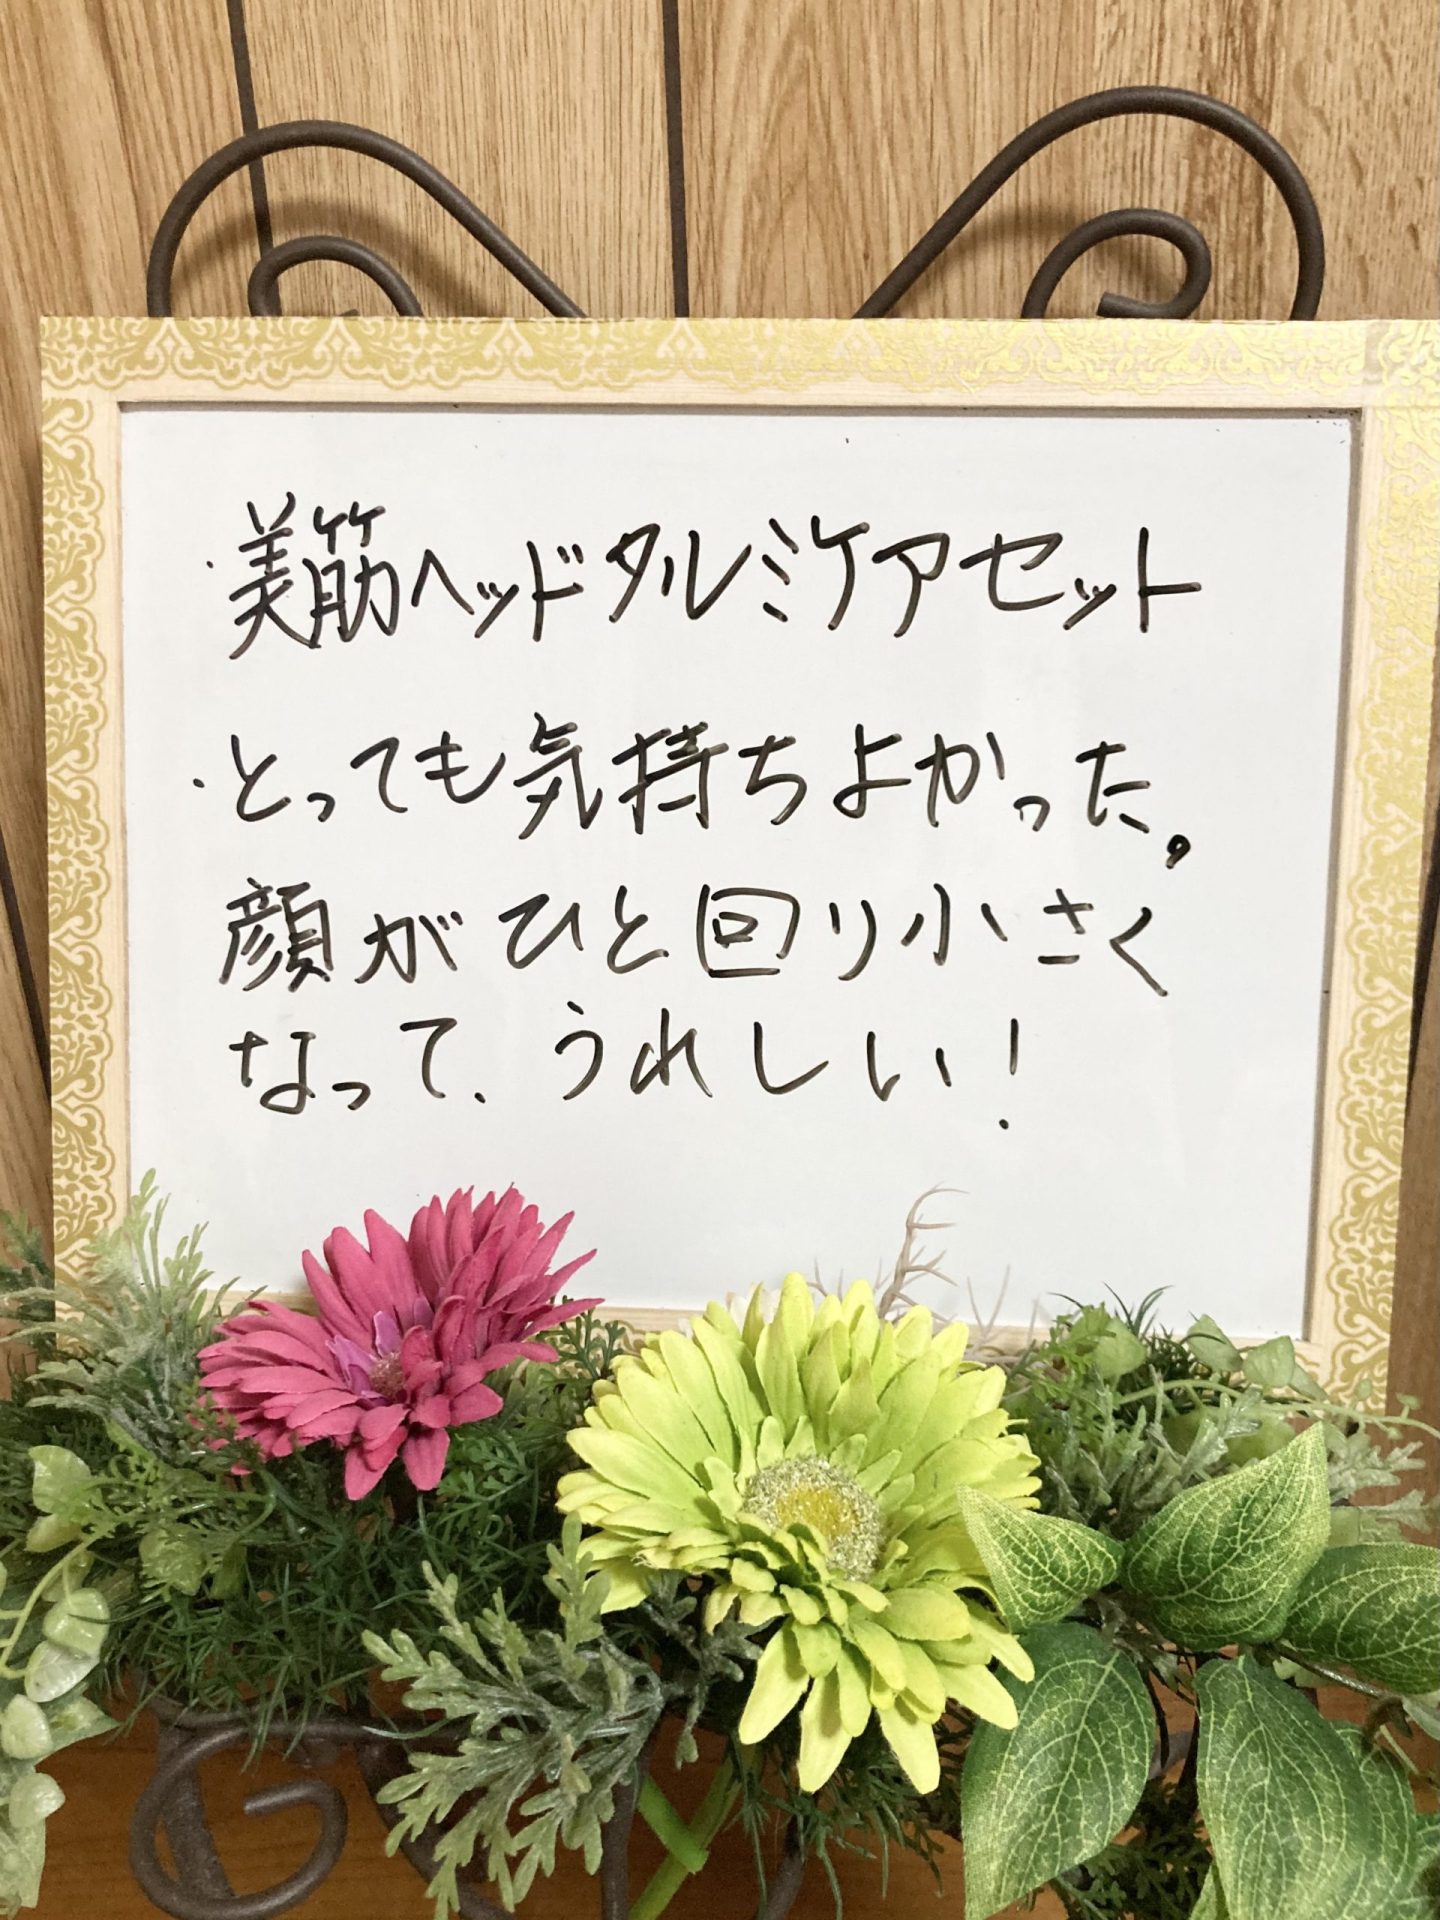 ・美筋ヘッドタルミケアセット
・とっても気持ちよかった。
顔がひと回り小さく
なって、うれしい！